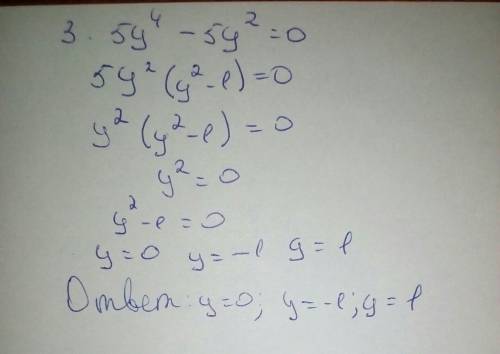 3. 5y⁴ - 5y² = 0
5y² (y² - 1) = 0
y² (y² - 1) = 0
y² = 0
y² - 1 = 0
y = 0 y = -1 y = 1
Ответ: y = 0; y = -1; y = 1